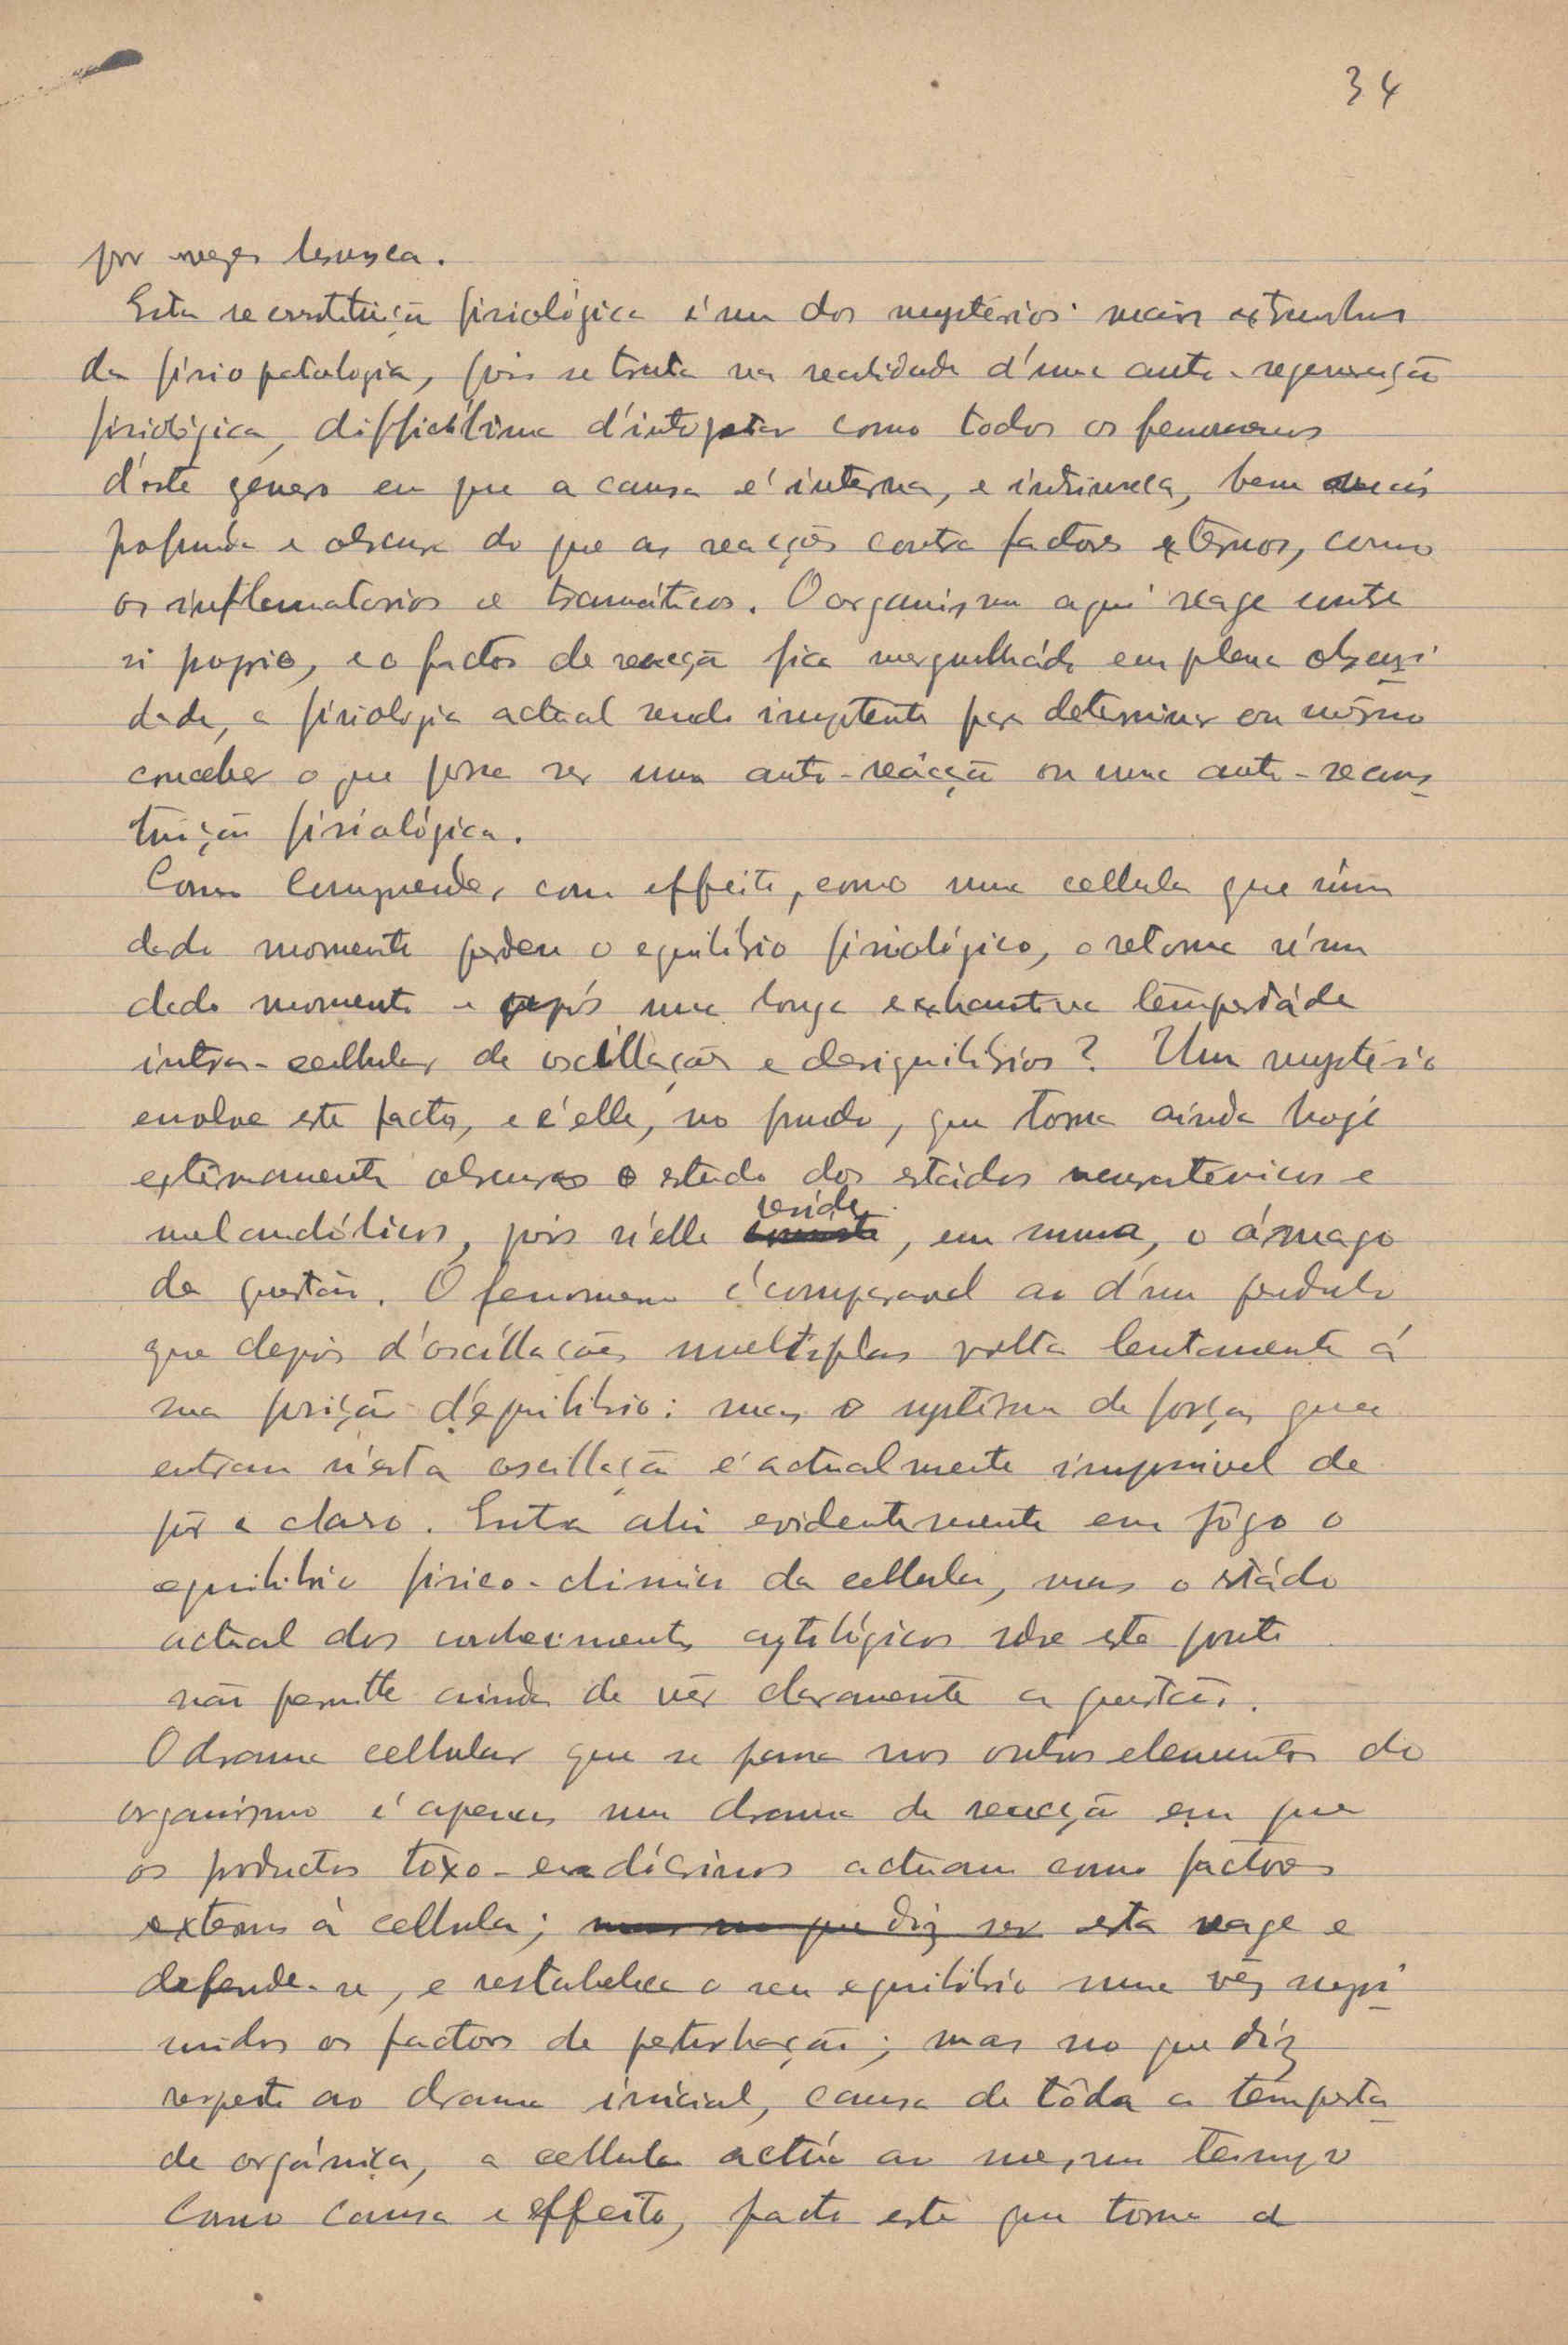 34
por vezes brusca.
Esta reconstituição fisiológica é um dos mystérios mais extranhos
da fisiopatologia, pois se trata na realidade d'uma auto-regeneração
fisiológica, difficílima d'interpretar como todos os fenomenos
d'este género em que a causa é interna, e intrinseca, bem mais
profunda e obscura do que as reacções contra factores externos, como
os inflamatorios e traumáticos. O organismo aqui reage contra
si proprio, e o factor de reacção fica mergulhádo em plena obscuri
dade, a fisiologia actual sendo impotente para determinar ou mêsmo
conceber o que possa ser uma auto-reácção ou uma auto-recons
tituição fisiológica.
Como comprender, com effeito, como uma cellula que n'um
dado momento perdeu o equilibrio fisiológico, o retoma n'um
dado momento e após uma longa e exhaustiva tempestáde
intra-cellular de oscillações e desiquilibrios? Um mystério
envolve este facto, e é elle, no fundo, que torna ainda hoje
extremamente obscuro o estudo dos estádos neurasténicos e
melancólicos, pois n'elle reside, em suma, o âmago
da questão. O fenomeno é comparavel ao d'um pendulo
que depois d'oscillações multiplas volta lentamente á
sua posição d'equilibrio: mas o systema de forças que
entram n'esta oscillação é actualmente impossivel de
pôr a claro. Entra ahi evidentemente em jôgo o
equilibrio fisico-chimico da cellula, mas o estádo
actual dos conhecimentos cytológicos sobre este ponto
não permitte ainda de vêr claramente a questão.
O drama cellular que se passa nos outros elementos do
organismo é apenas um drama de reacção em que
os productos toxo-endócrinos actuam como factores
externos à cellula; mas no que diz res esta reage e
defende-se, e restabelece o seu equilibrio uma vêz supri
midos os factores de perturbação; mas no que díz
respeito ao drama inicial, causa de tôda a tempesta
de orgánica, a cellula actúa ao mesmo tempo
como causa e effeito, facto este que torna a